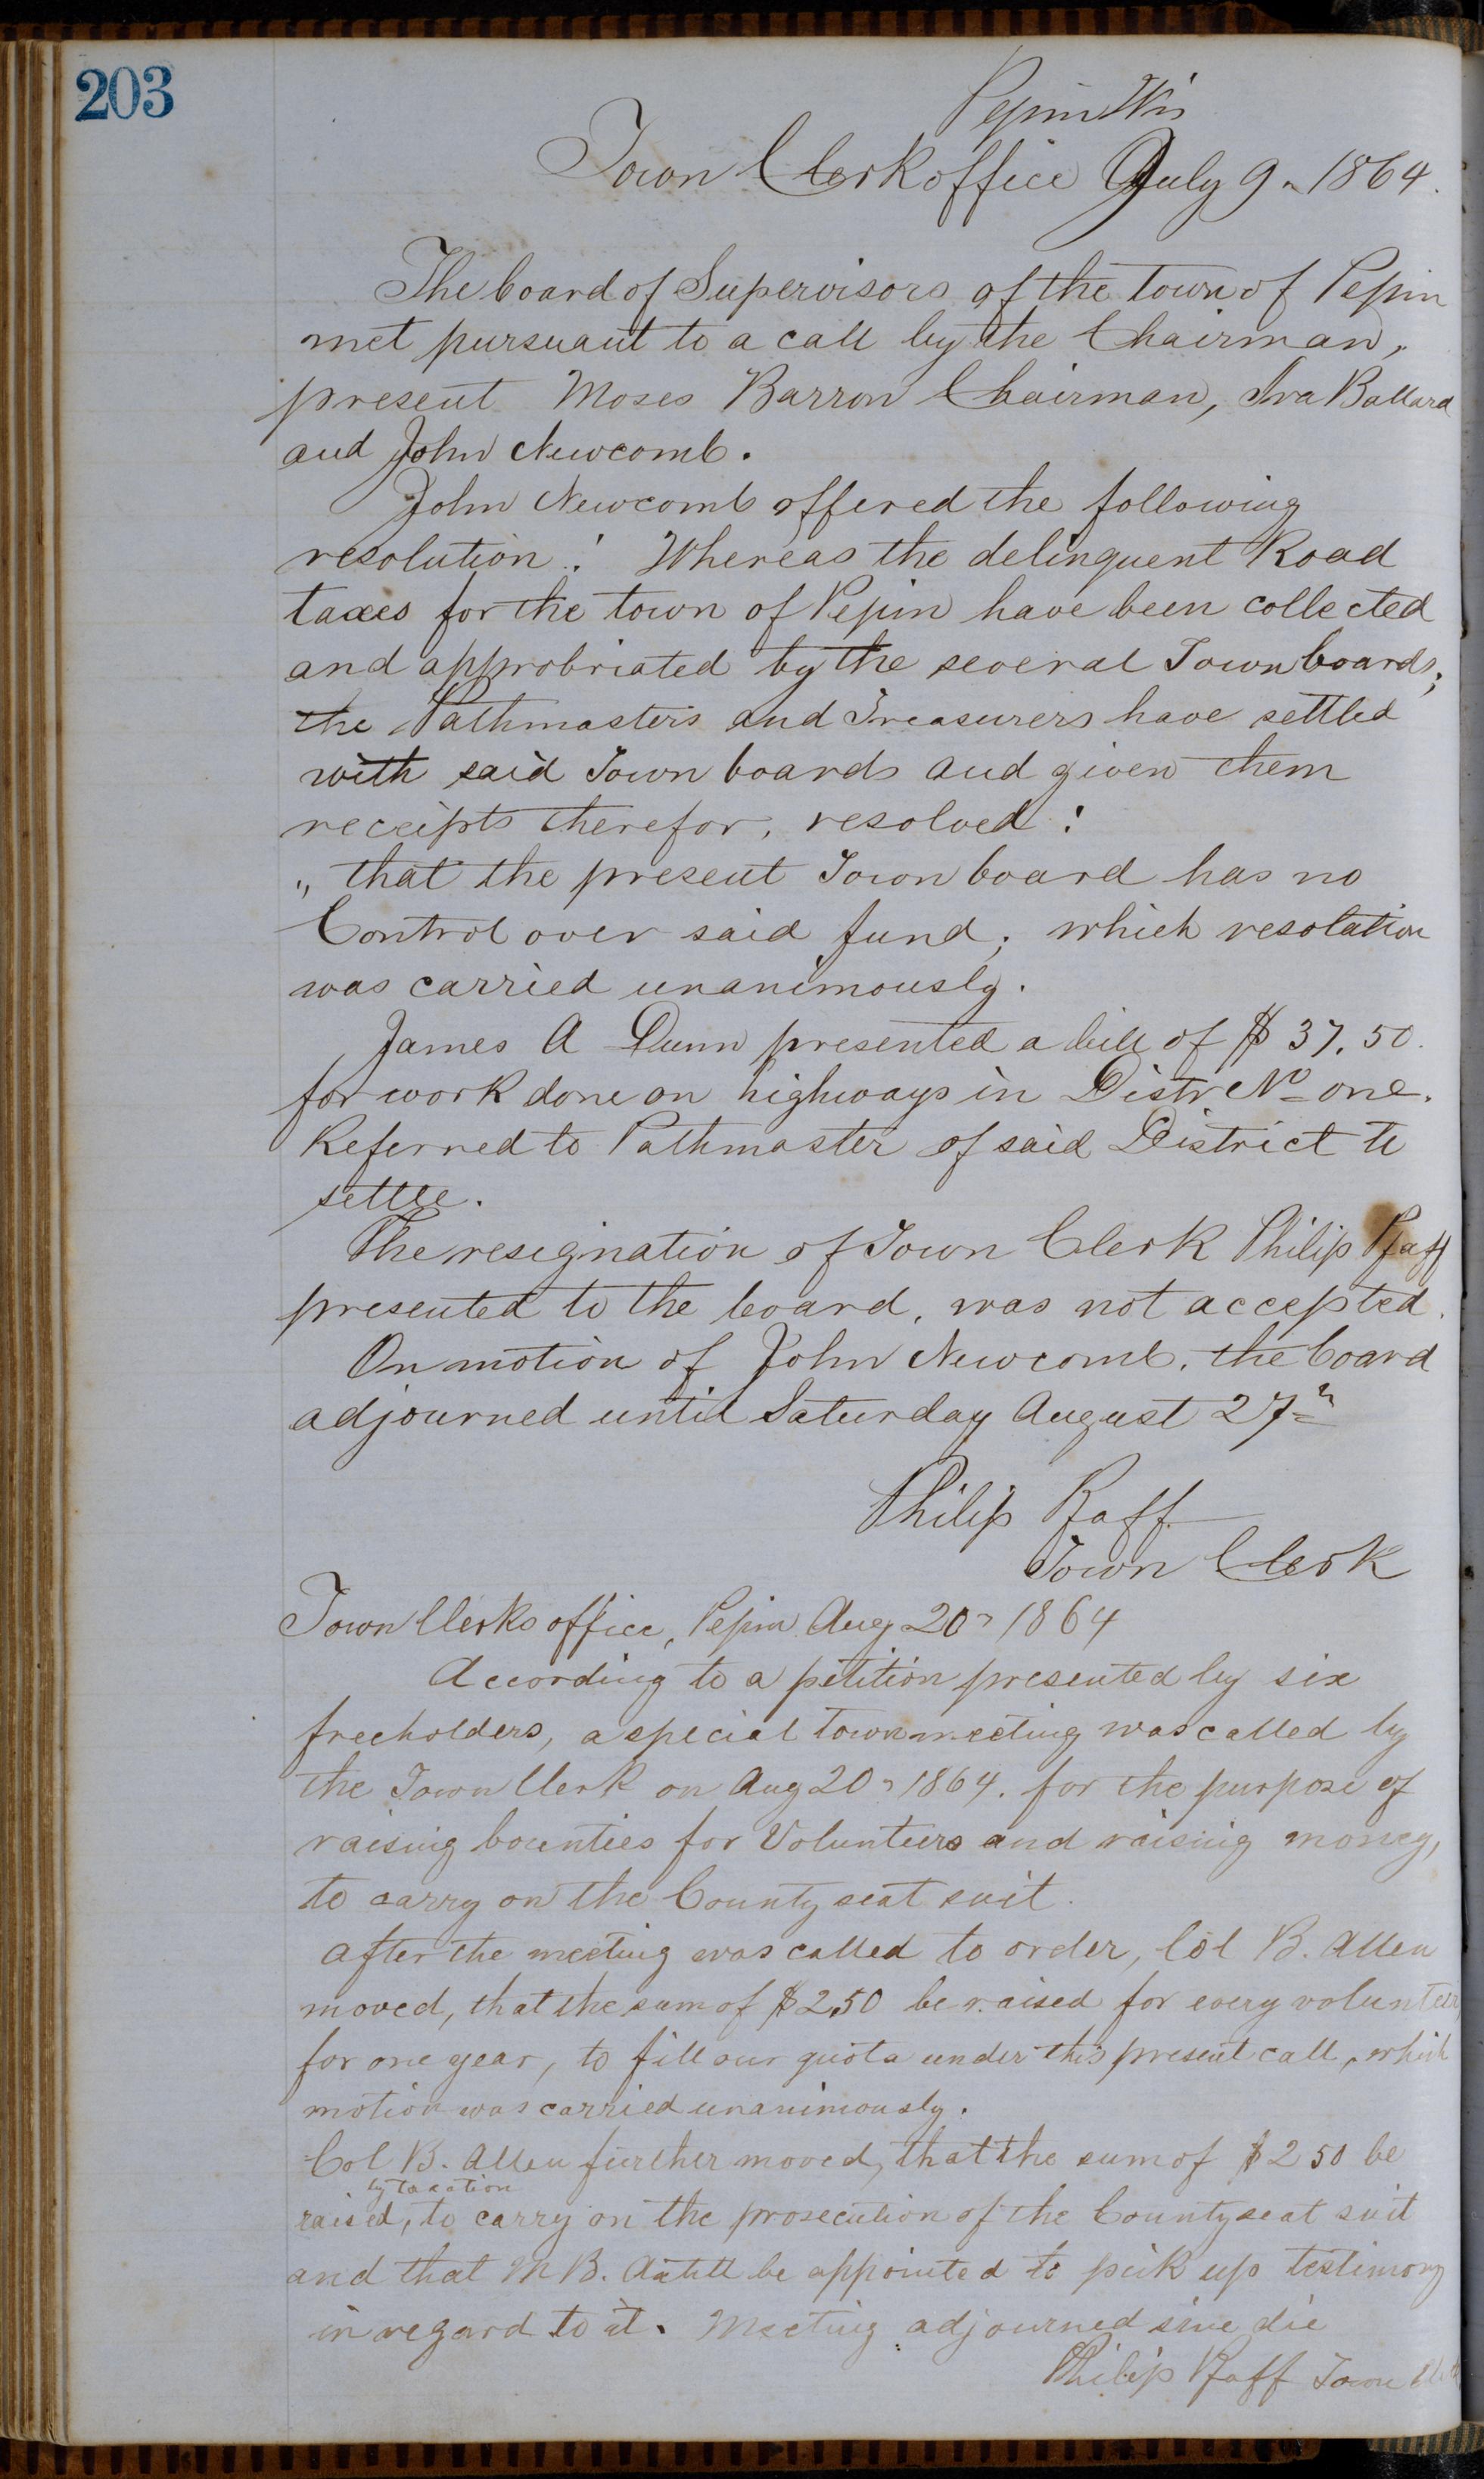 203
Pepin Wis
Town Clerk office July 9n 1864.
The board of Supervisors of the town of Pepin
met pursuant to a call by the Chairman,
present Moses Barron Chairman, Ira Ballard
and John Newcomb.
John Newcomb offered the following
resolution: Whereas the delinquent Road
taxes for the town of Pepin have been collected
and approbriated by the several Town boards;
the Pathmasters and Treasurers have settled
with said Town boards and given them
receipts therefor, resolved:
„ that the present Town board has no
Control over said fund; which resolution
was carried unanimously.
James A Dunn presented a bill of $ 37.50.
for work done on highways in Distr No one.
Referred to Pathmaster of said District to
settle.
The resignation of Town Clerk Philip Pfaff
presented to the board, was not accepted.
On motion of John Newcomb, the board
adjourned until Saturday August 27n
Philip Pfaff
Town Clerk
Town Clerks office, Pepin Aug 20n 1864
According to a petition presented by six
freeholders, a special town meeting was called by
the Town Clerk on Aug 20n 1864. for the purpose of
raising bounties for Volunteers and raising money,
to carry on the County seat suit.
after the meeting was called to order, Col B. Allen
moved, that the sum of $250 be raised for every volunteer,
for one year, to fill our quota under this present call, which
motion was carried unanimously.
Col B. Allen further moved, that the sum of $250 be
by taxation
raised, to carry on the prosecution of the County seat suit
and that M B. be appointed to pick up testimony
in regard to it. Meeting adjourned sine die
Philip Pfaff Town